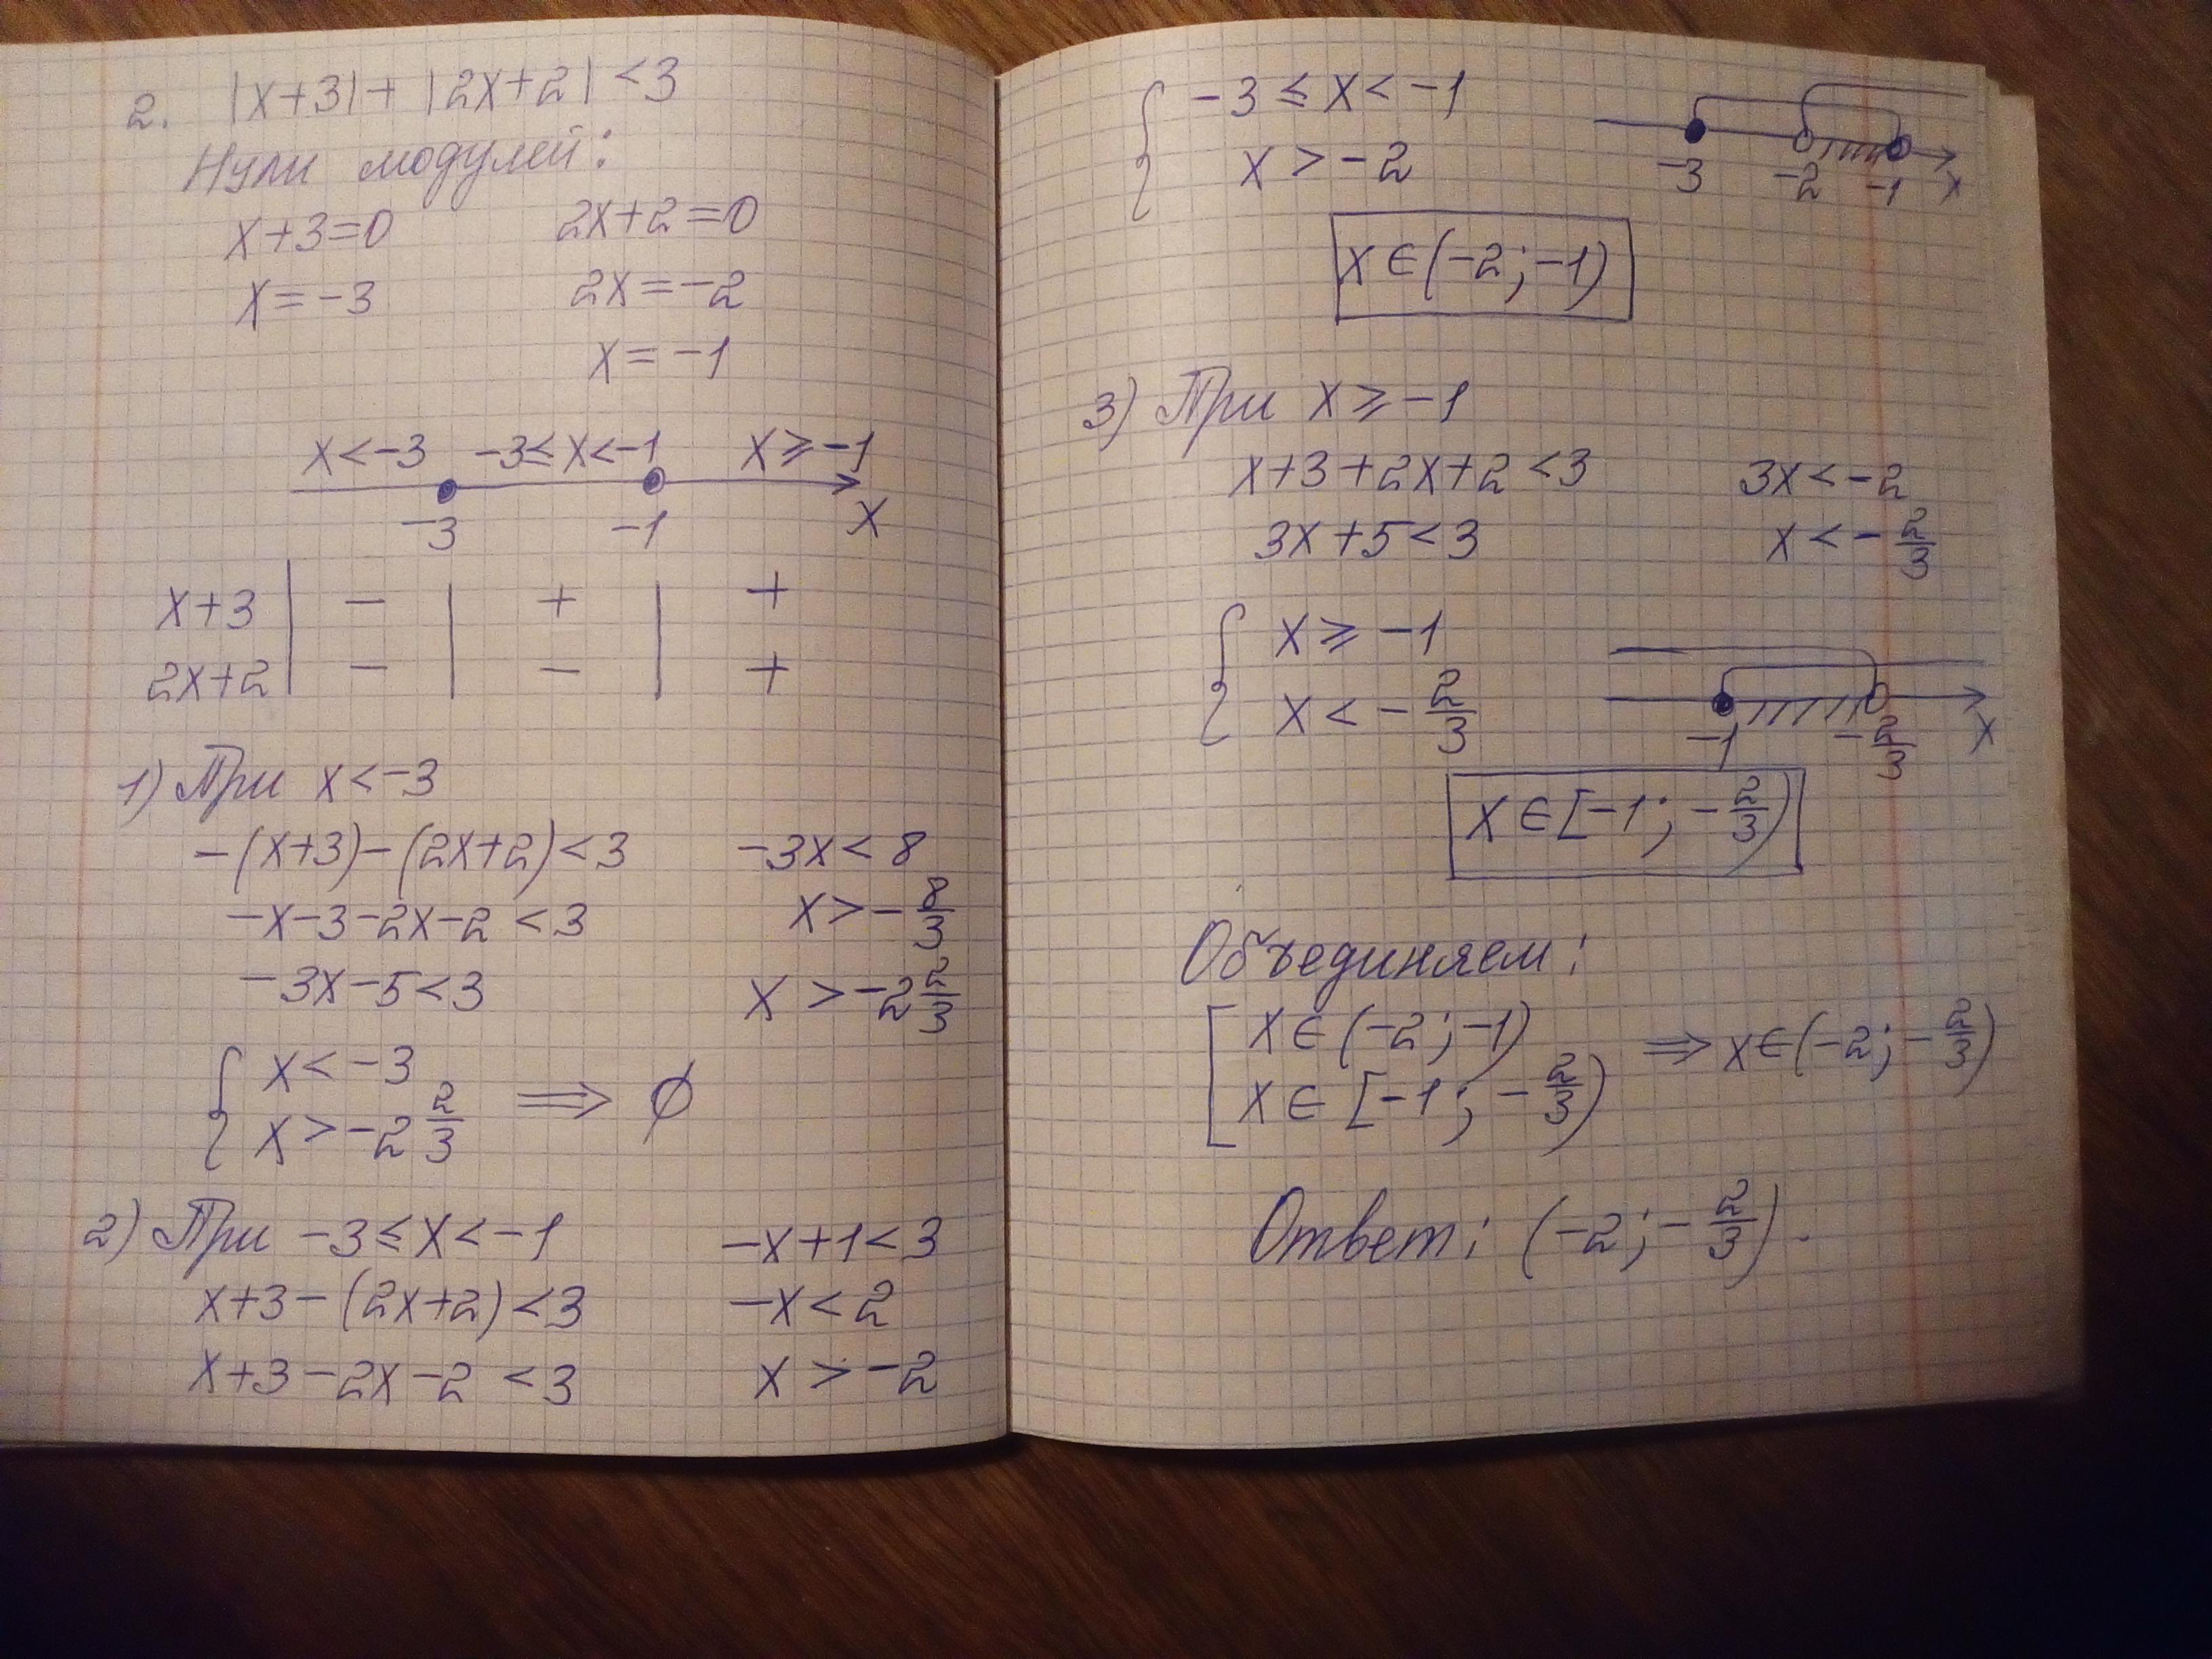 2. |x+3|+|2x+2|<3
Нули модулей:
x+3=0 2x+2=0
x=-3 2x=-2
x=-1
x<-3 -3≤x<-1 x≥-1
-3 -1 x
x+3 | - | + | +
2x+2 | - | - | +
1) При x<-3
-(x+3)-(2x+2)<3 -3x<8
-x-3-2x-2<3 x>-8/3
-3x-5<3 x>-2 2/3
{ x<-3
x>-2 2/3 ⟹ ∅
2) При -3≤x<-1 -x+1<3
x+3-(2x+2)<3 -x<2
x+3-2x-2<3 x>-2
{ -3≤x<-1
x>-2 -3 -2 -1 x
x∈(-2;-1)
3) При x≥-1
x+3+2x+2<3 3x<-2
3x+5<3 x<-2/3
{ x≥-1
x<-2/3 -1 -2/3 x
x∈[-1;-2/3)
Объединяем:
[ x∈(-2;-1) ⟹ x∈(-2;-2/3)
x∈[-1;-2/3)
Ответ: (-2;-2/3).